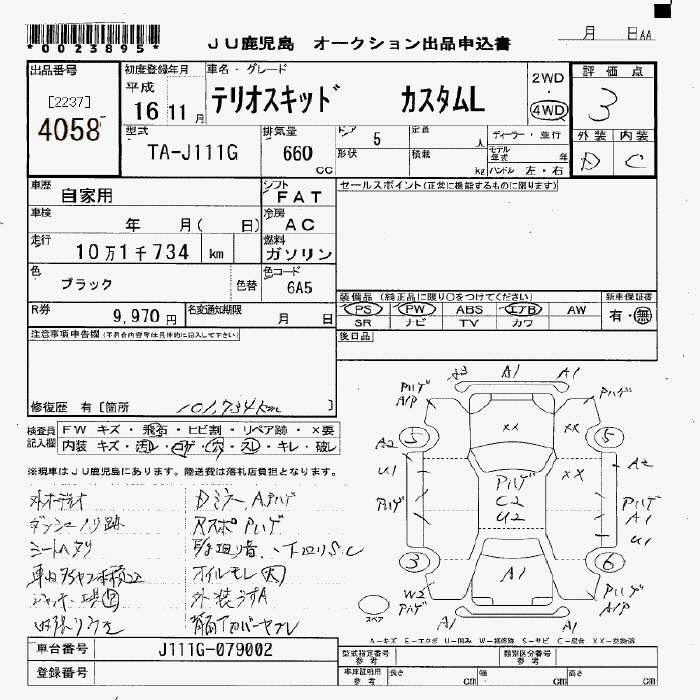 *0023895*
JU鹿児島 オークション出品申込書
月 日AA
出品番号
[2237]
4058
初度登録年月
平成
16 11月
車名・グレード
テリオスキッド カスタムL
2WD
・
4WD
評価点
3
外装 内装
D C
型式
TA-J111G
排気量
660
CC
ドア 5
定員 人
形状
積載 kg
ディーラー・並行
モデル年式 年
ハンドル 左・右
車歴
自家用
シフト
FAT
車検
年 月( 日)
冷房
AC
走行
10万1千734 km
燃料
ガソリン
色
ブラック
色替
色コード
6A5
R券
9,970 円
名変通知期限
月 日
セールスポイント(正常に機能するものに限ります)
装備品 (純正品に限り○をつけてください)
新車保証書
PS PW ABS エアB AW
SR ナビ TV カワ
有・無
後日品
注意事項申告欄(不具合内容等は具体的に記入して下さい)
修復歴 有〔箇所 101,734km 〕
検査員記入欄
FW キズ・飛石・ヒビ割・リペア跡・×要
内装 キズ・汚レ・コゲ・穴・スレ・キレ・破レ
※現車はJU鹿児島にあります。陸送費は落札店負担となります。
外オーディオ
ダッシュノリ跡
シートヘタリ
DミラーAハゲ
オイルモレ(大)
外装うすA
A1
A1
Pハゲ
A/P
Pハゲ
XX
XX
5
5
A2
U1
XX
A2
Pハゲ
Pハゲ
C2
U2
Pハゲ
A1
U1
3
6
A1
W2
Pハゲ
Pハゲ
A/P
スペア
A1
A1
A-キズ E-エクボ U-凹み W-補修跡 S-サビ C-腐食 XX-交換済
車台番号
J111G-079002
登録番号
型式指定番号
参考
類別区分番号
参考
車庫証明用
参考
長さ cm
幅 cm
高さ cm